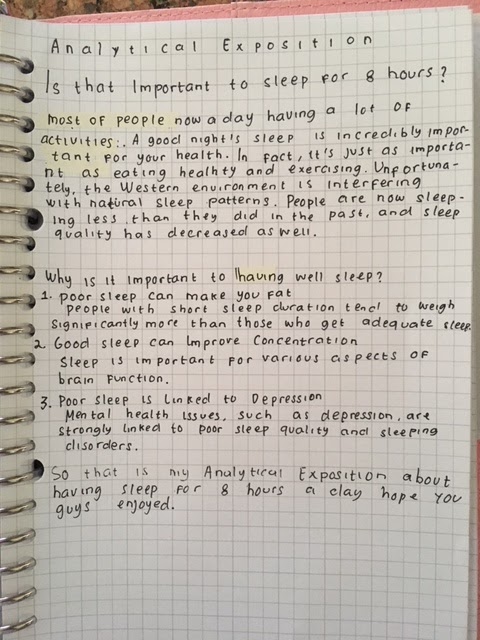 Analytical Exposition
Is that Important to sleep for 8 hours?
most of people now a day having a lot of
activities:. A good night's sleep is incredibly impor-
tant for your health. In fact, it's just as importa-
nt as eating healhty and exercising. Unfortuna-
tely, the Western environment is interfering
with natural sleep patterns. People are now sleep-
ing less than they did in the past, and sleep
quality has decreased as well.
Why is it important to having well sleep?
1. poor sleep can make you fat
people with short sleep duration tend to weigh
significantly more than those who get adequate sleep.
2 Good sleep can Improve Concentration
Sleep is important for various aspects of
brain function.
3. Poor sleep is Linked to Depression
Mental health issues, such as depression, are
strongly linked to poor sleep quality and sleeping
disorders.
So that is my Analytical Exposition about
having sleep for 8 hours a day hope you
guys enjoyed.